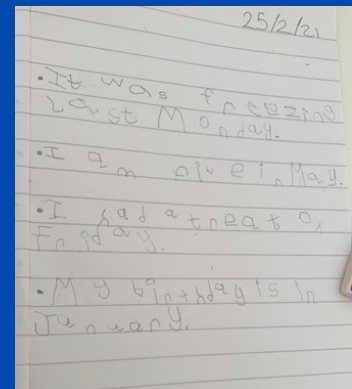 25/2/21
• It was freezing
Last Monday.
• I am nive in May.
• I had a treat on
Friday.
• My birthday is in
January.